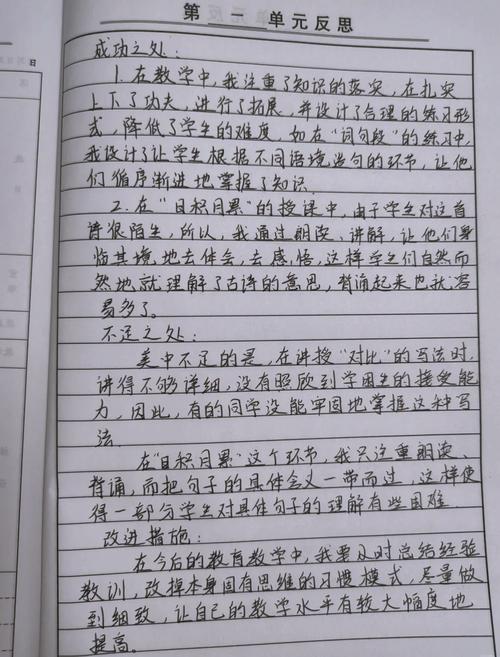 第 单元反思
成功之处:
1.在教学中,我注重了知识的落实,在扎实
上下了功夫,进行了拓展,并设计了合理的练习形
式,降低了学生的难度。如在“词句段”的练习中,
我设计了让学生根据不同语境造句的环节,让他
们循序渐进地掌握了知识。
2.在“日积月累”的授课中,由于学生对这首
诗很陌生,所以,我通过朗读、讲解,让他们身
临其境,地去体会,去感悟,这样学生们自然而
然地就理解了古诗的意思,背诵起来也就容
易多了。
不足之处:
美中不足的是,在讲授“对比”的写法时,
讲得不够详细,没有照欣到学困生的接受能
力,因此,有的同学没能牢固地掌握这种写
法
在“日积月累”这个环节,我只注重朗读、
背诵,而把句子的具体含义一带而过,这样使
得一部分学生对具体句子的理解有些困难
改进措施:
在今后的教育教学中,我要及时总结经验
教训,改掉本身固有思维的习惯模式,尽量做
到细致,让自己的教学水平有较大幅度地
提高。